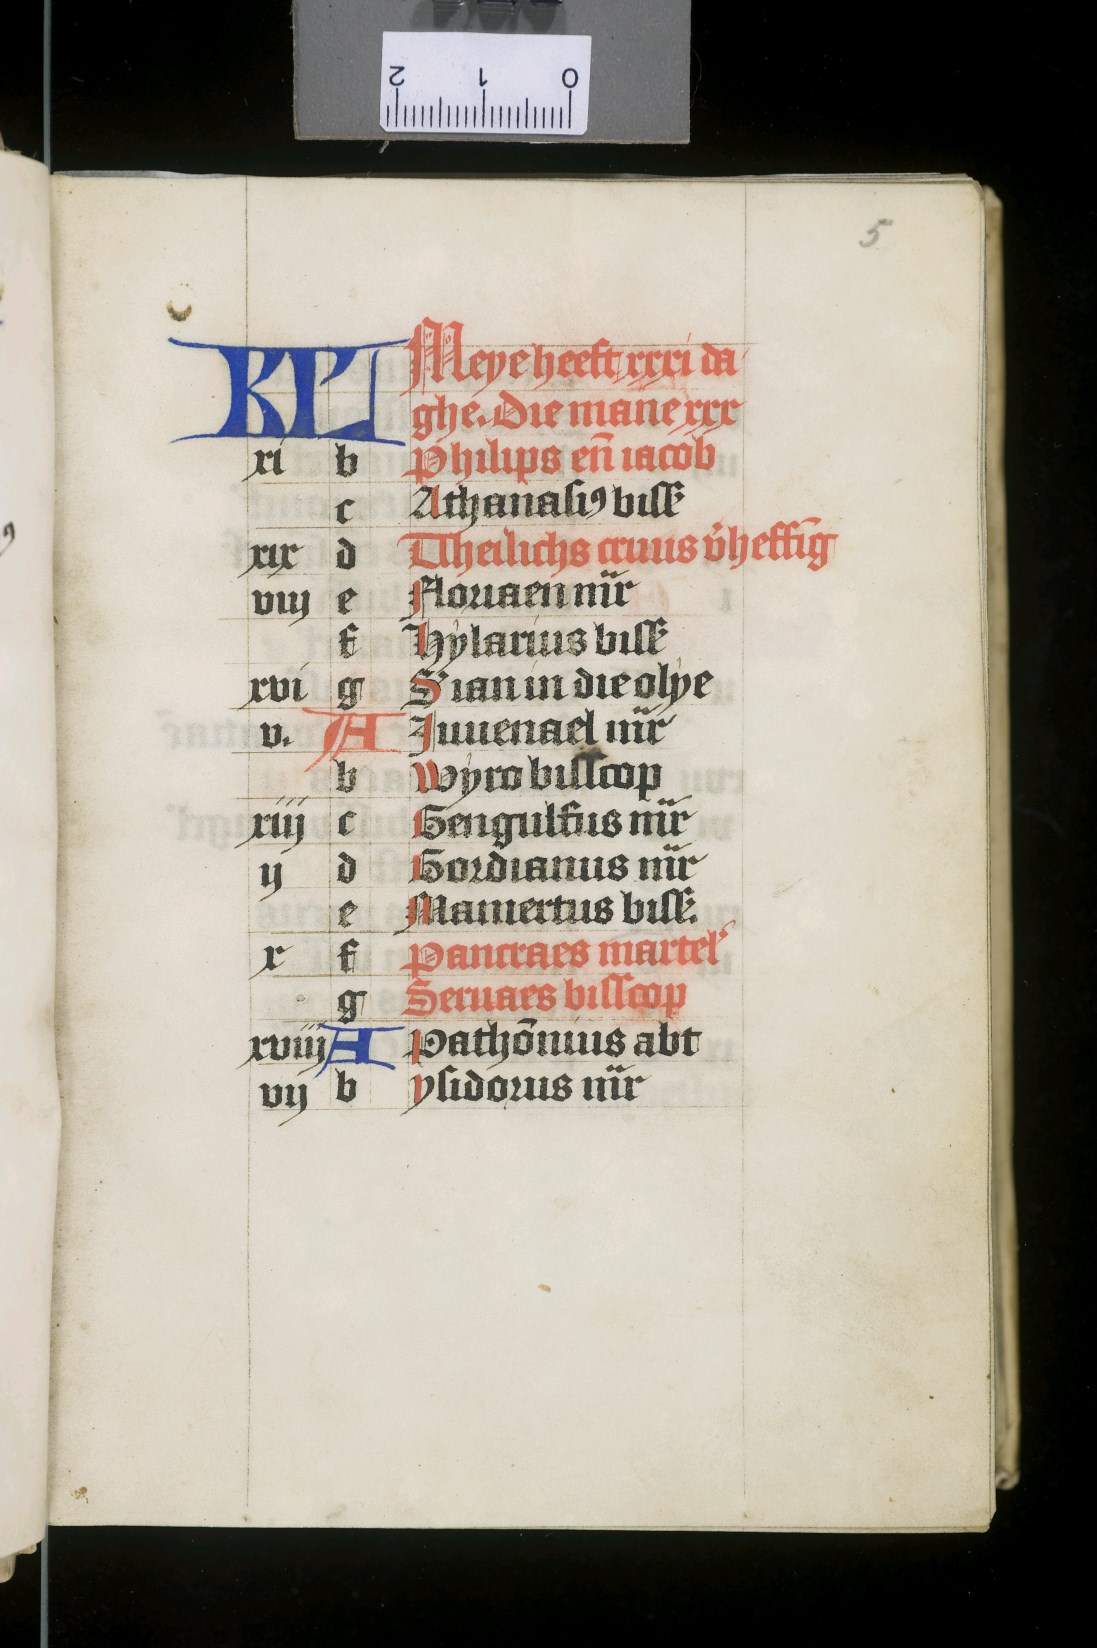 2 1 0
5
KL Meye heeft xxxi da
ghe. Die mane xxx
xi b Philips en̄ iacob
c Athanasiꝯ bissꝭ
xix d Dheilichs cruus v̓heffīg
viij e Floriaen mr̄
f Hylarius bissꝭ
xvi g S' ian in die olye
v. A Iuuenael mr̄
b Wyro bisscop
xiij c Gengulfus mr̄
ij d Gordianus mr̄
e Mamertus bissꝭ.
x f Pancraes martel'
g Seruaes bisscop
xviij A Pathōnius abt
vij b ysidorus mr̄